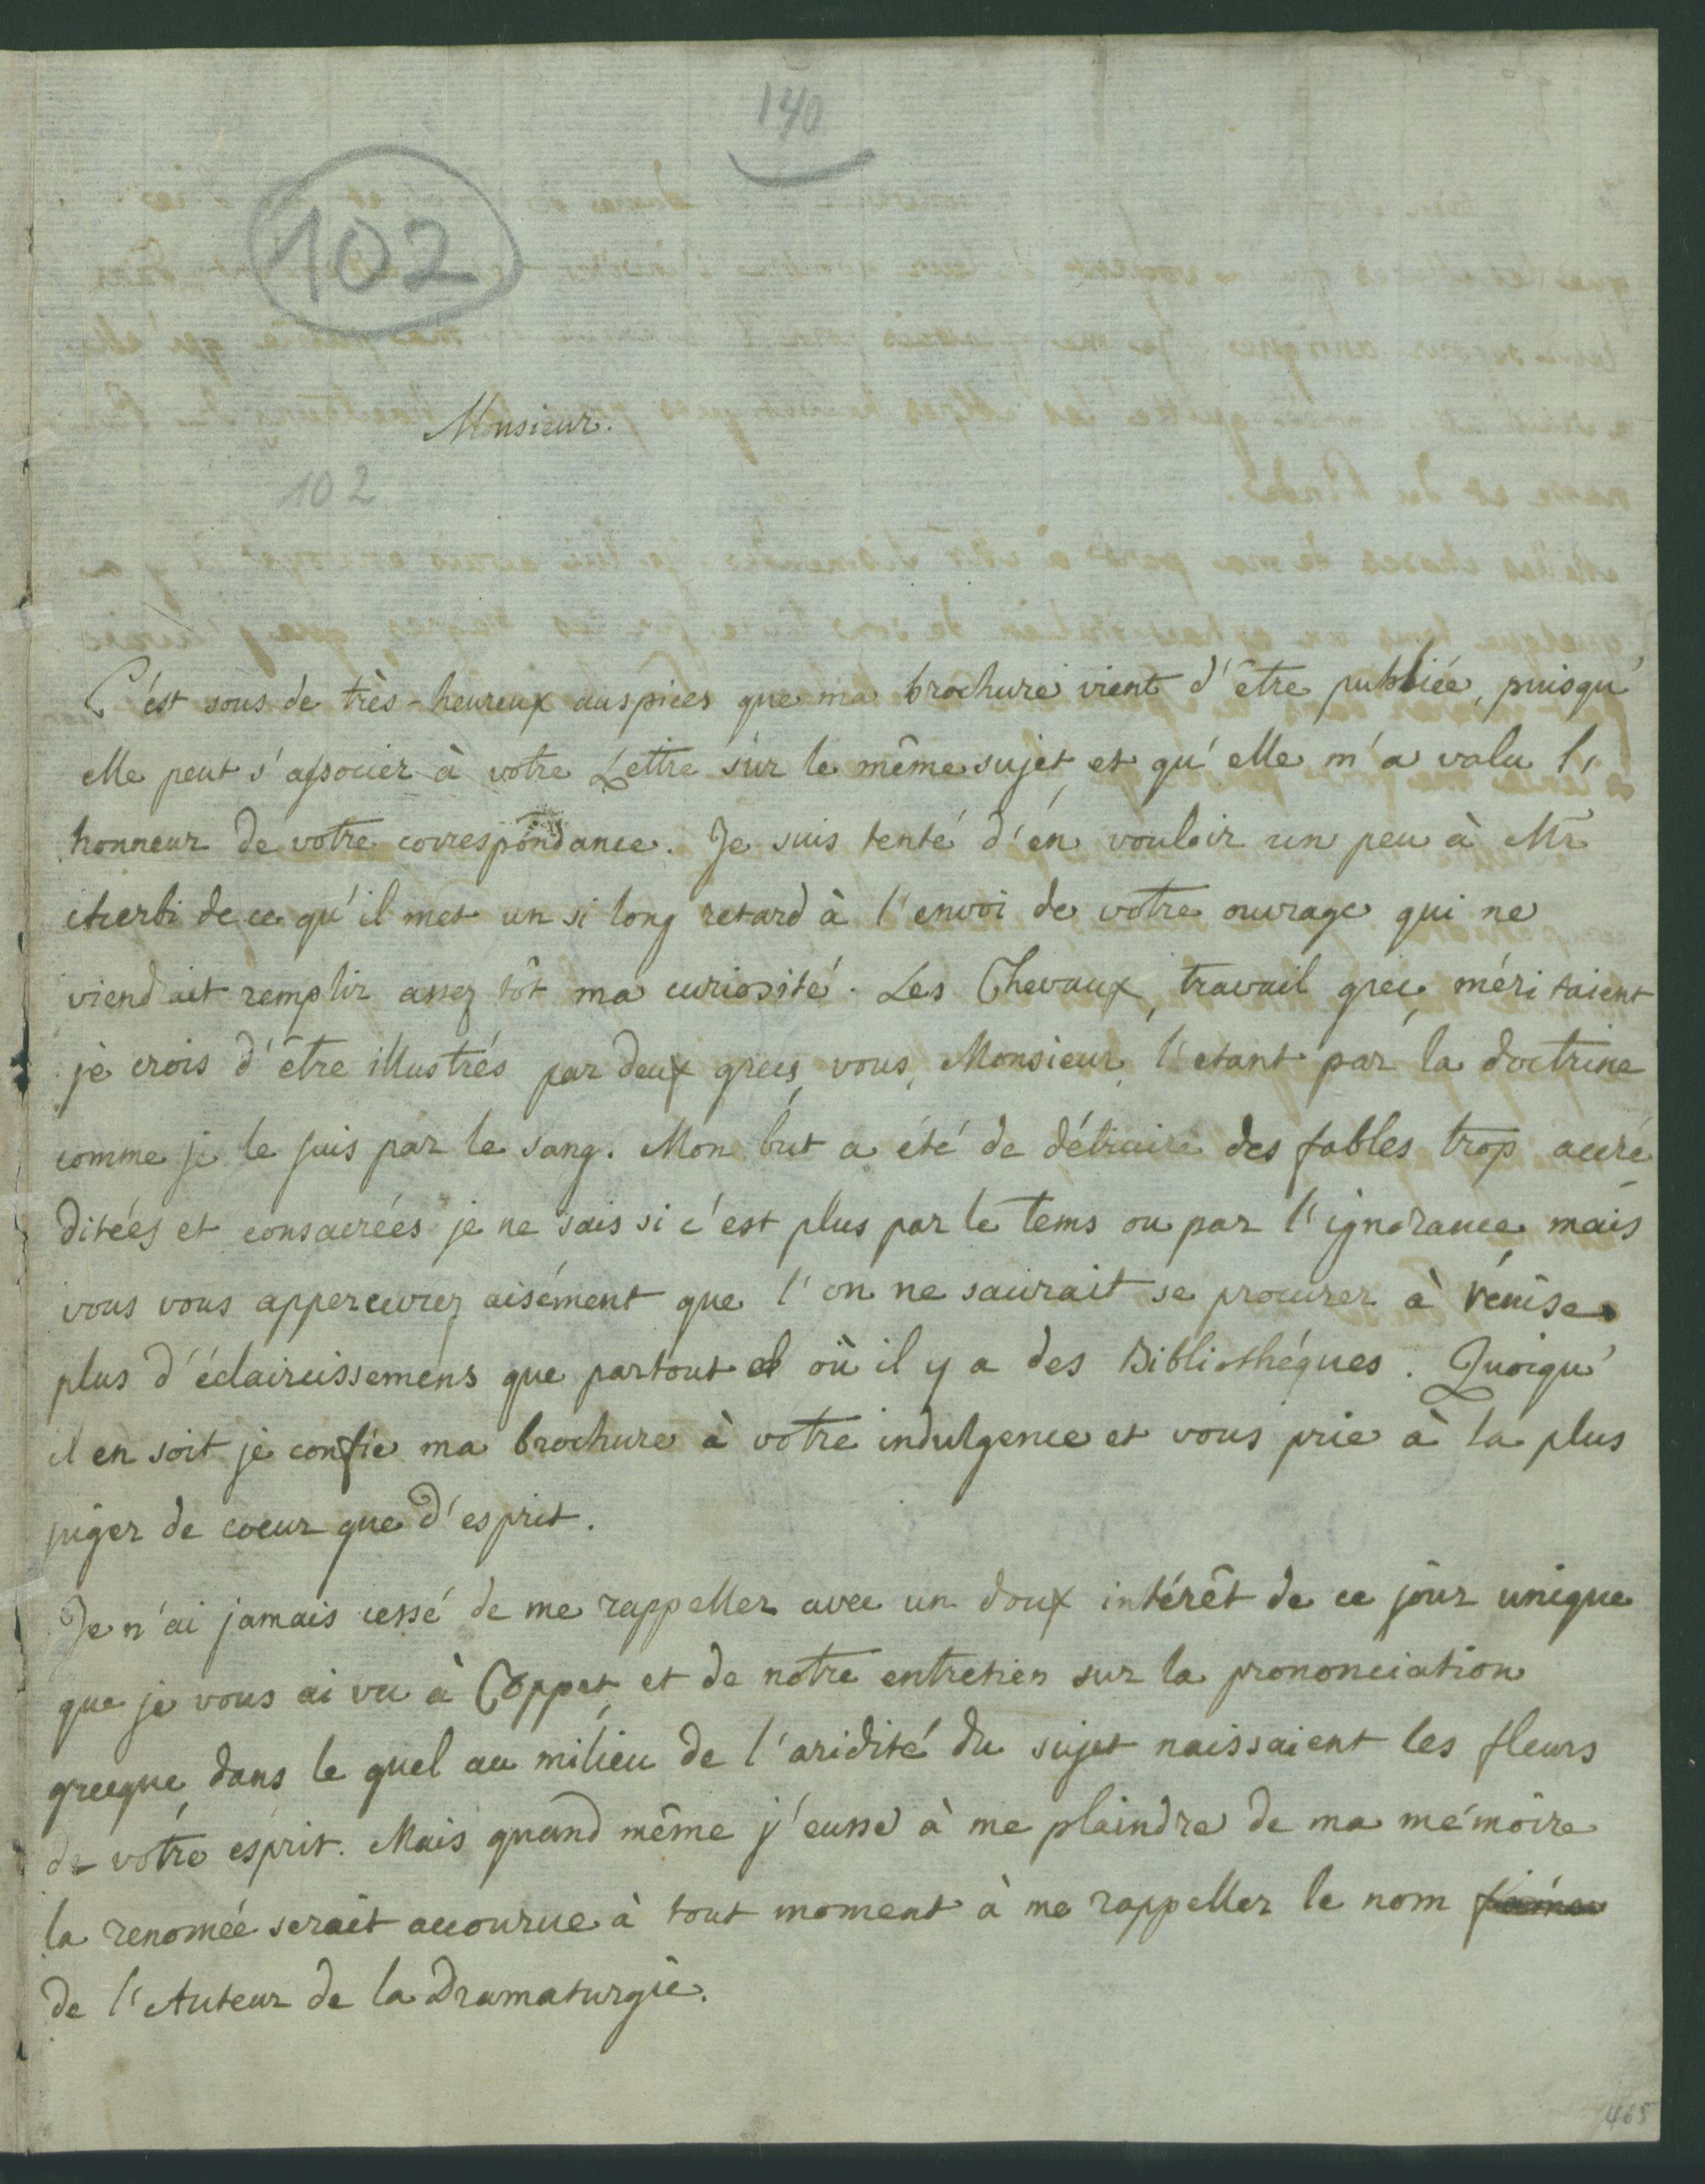 140
102
Monsieur.
102
C'est sous de très-heureux auspices que ma brochure vient d'être publiée, puisqu'
elle peut s'associer à votre Lettre sur le même sujet, et qu'elle m'a valu l'
honneur de votre correspondance. Je suis tenté d'en vouloir un peu à Mr
Acerbi de ce qu'il met un si long retard à l'envoi de votre ouvrage qui ne
viendrait remplir assez tôt ma curiosité. Les Chevaux, travail grec, méritaient
je crois d'être illustrés par deux grecs, vous, Monsieur, l'etant par la doctrine
comme je le suis par le sang. Mon but a été de détruire des fables trop accré
ditées et consacrées je ne sais si c'est plus par le tems ou par l'ignorance, mais
vous vous appercevrez aisément que l'on ne saurait se procurer à Vénise
plus d'éclaircissemens que partout où il y a des Bibliothéques. Quoiqu'
il en soit je confie ma brochure à votre indulgence et vous prie à la plus
juger de coeur que d'esprit.
Je n'ai jamais cessé de me rappeller avec un doux intérêt de ce jour unique
que je vous ai vu à Coppet, et de notre entretien sur la prononciation
grecque, dans le quel au milieu de l'aridité du sujet naissaient les fleurs
de votre esprit. Mais quand même j'eusse à me plaindre de ma mémoire
la renomée serait accourue à tout moment à me rappeller le nom
de l'Auteur de la Dramaturgie.
465